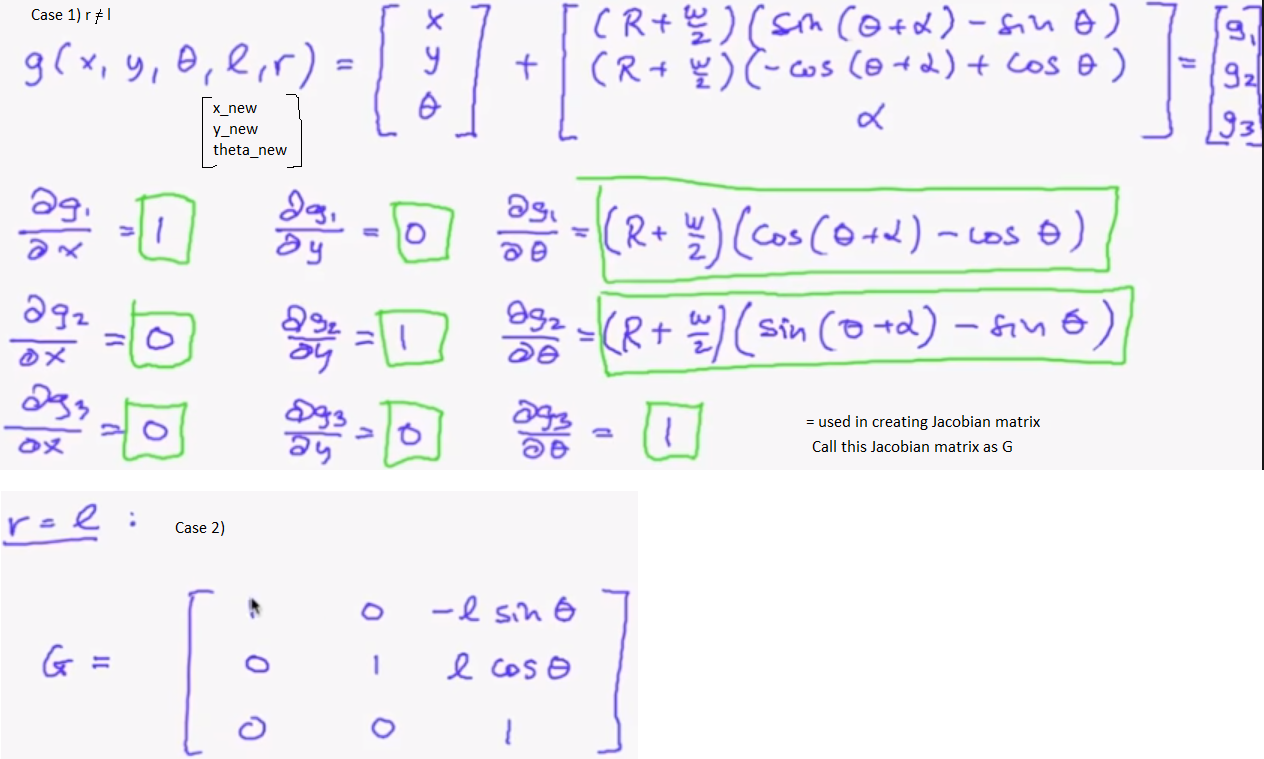 Case 1) r ≠ l
g(x, y, θ, l, r) = [ x y θ ] + [ (R + w/2)(sin(θ+α) − sin θ) (R + w/2)(−cos(θ+α) + cos θ) α ] = [ g₁ g₂ g₃ ]
x_new
y_new
theta_new
∂g₁/∂x = 1 ∂g₁/∂y = 0 ∂g₁/∂θ = (R + w/2)(cos(θ+α) − cos θ)
∂g₂/∂x = 0 ∂g₂/∂y = 1 ∂g₂/∂θ = (R + w/2)(sin(θ+α) − sin θ)
∂g₃/∂x = 0 ∂g₃/∂y = 0 ∂g₃/∂θ = 1
= used in creating Jacobian matrix
Call this Jacobian matrix as G
r = l : Case 2)
0 −l sin θ
G = 0 1 l cos θ
0 0 1